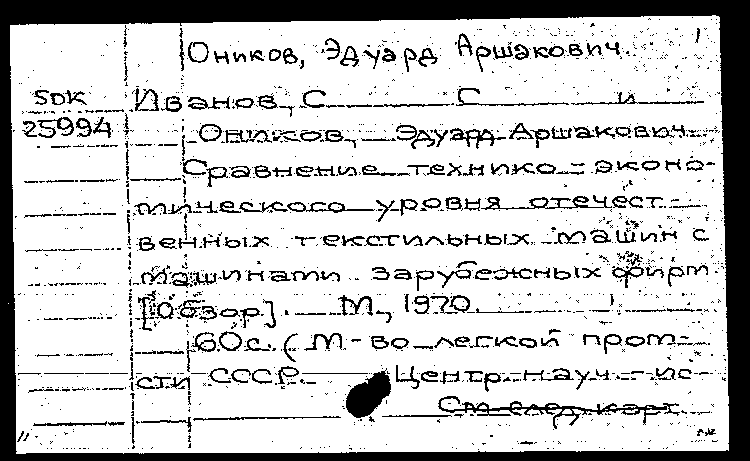 Оников, Эдуард Аршакович.
SDK Иванов, С С и
25994 Оников, Эдуард Аршакович
Сравнение технико-эконо-
мического уровня отечест-
венных текстильных машин с
машинами зарубежных фирм.
[Обзор]. М., 1970.
60с. (М-во легкой пром-
сти СССР. Центр. науч.-ис-
См след карт